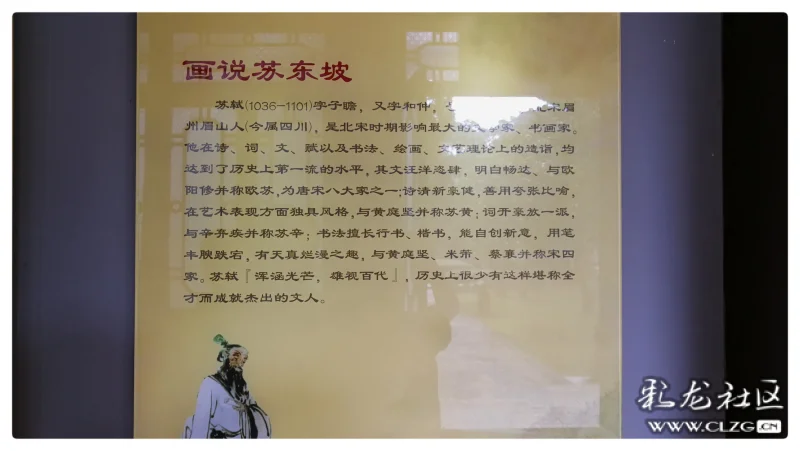 画说苏东坡
苏轼(1036-1101)字子瞻，又字和仲，宋眉
州眉山人(今属四川)，是北宋时期影响最大的文学家、书画家。
他在诗、词、文、赋以及书法、绘画、文艺理论上的造诣，均
达到了历史上第一流的水平，其文汪洋恣肆，明白畅达、与欧
阳修并称欧苏，为唐宋八大家之一；诗清新豪健，善用夸张比喻，
在艺术表现方面独具风格，与黄庭坚并称苏黄；词开豪放一派，
与辛弃疾并称苏辛；书法擅长行书、楷书，能自创新意，用笔
丰腴跌宕，有天真烂漫之趣，与黄庭坚、米芾、蔡襄并称宋四
家。苏轼『浑涵光芒，雄视百代』，历史上很少有这样堪称全
才而成就杰出的文人。
彩龙社区
WWW.CLZG.CN